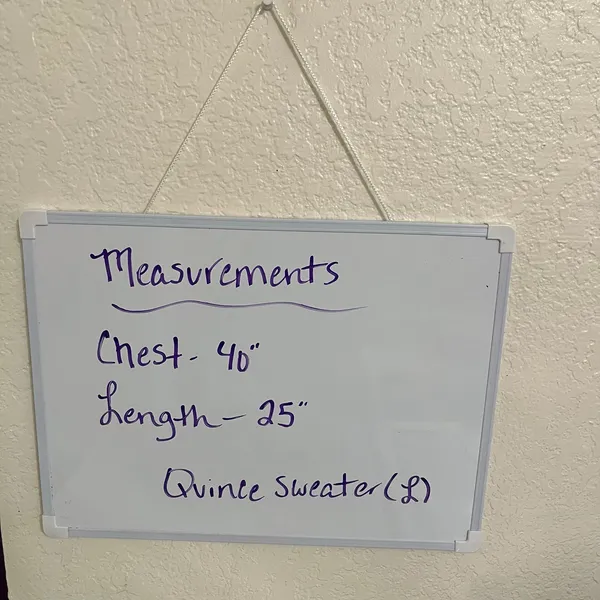 Measurements
Chest - 40"
Length - 25"
Quince Sweater (L)